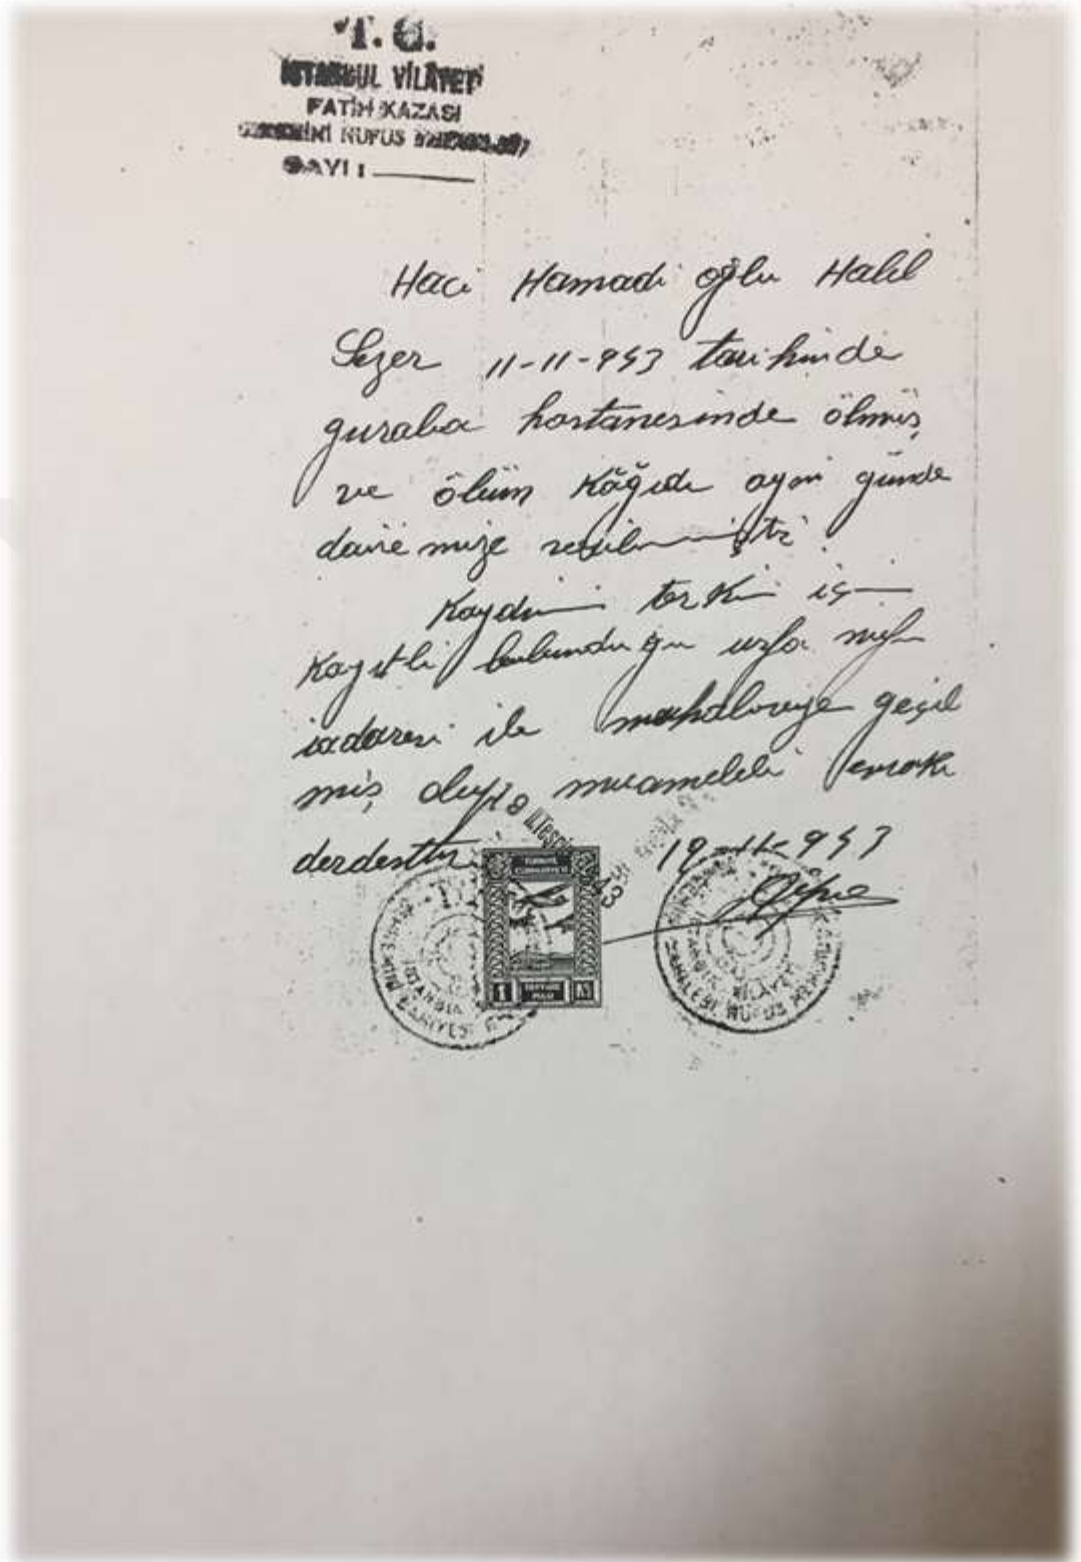 T. C.
İSTANBUL VİLÂYETİ
FATİH KAZASI
NUFUS
SAYI :
Haci Hamadi oğlu Halil
Sezer 11-11-943 tarihinde
guraba hastanesinde ölmüş
ve ölüm kâğıdı ayni günde
dairemize verilmiştir.
Kaydının terkini için
kayıtlı bulunduğu urfa nüfus
idaresi ile muhabereye geçil
miş olup muamelesi
derdesttir 19-11-943
1